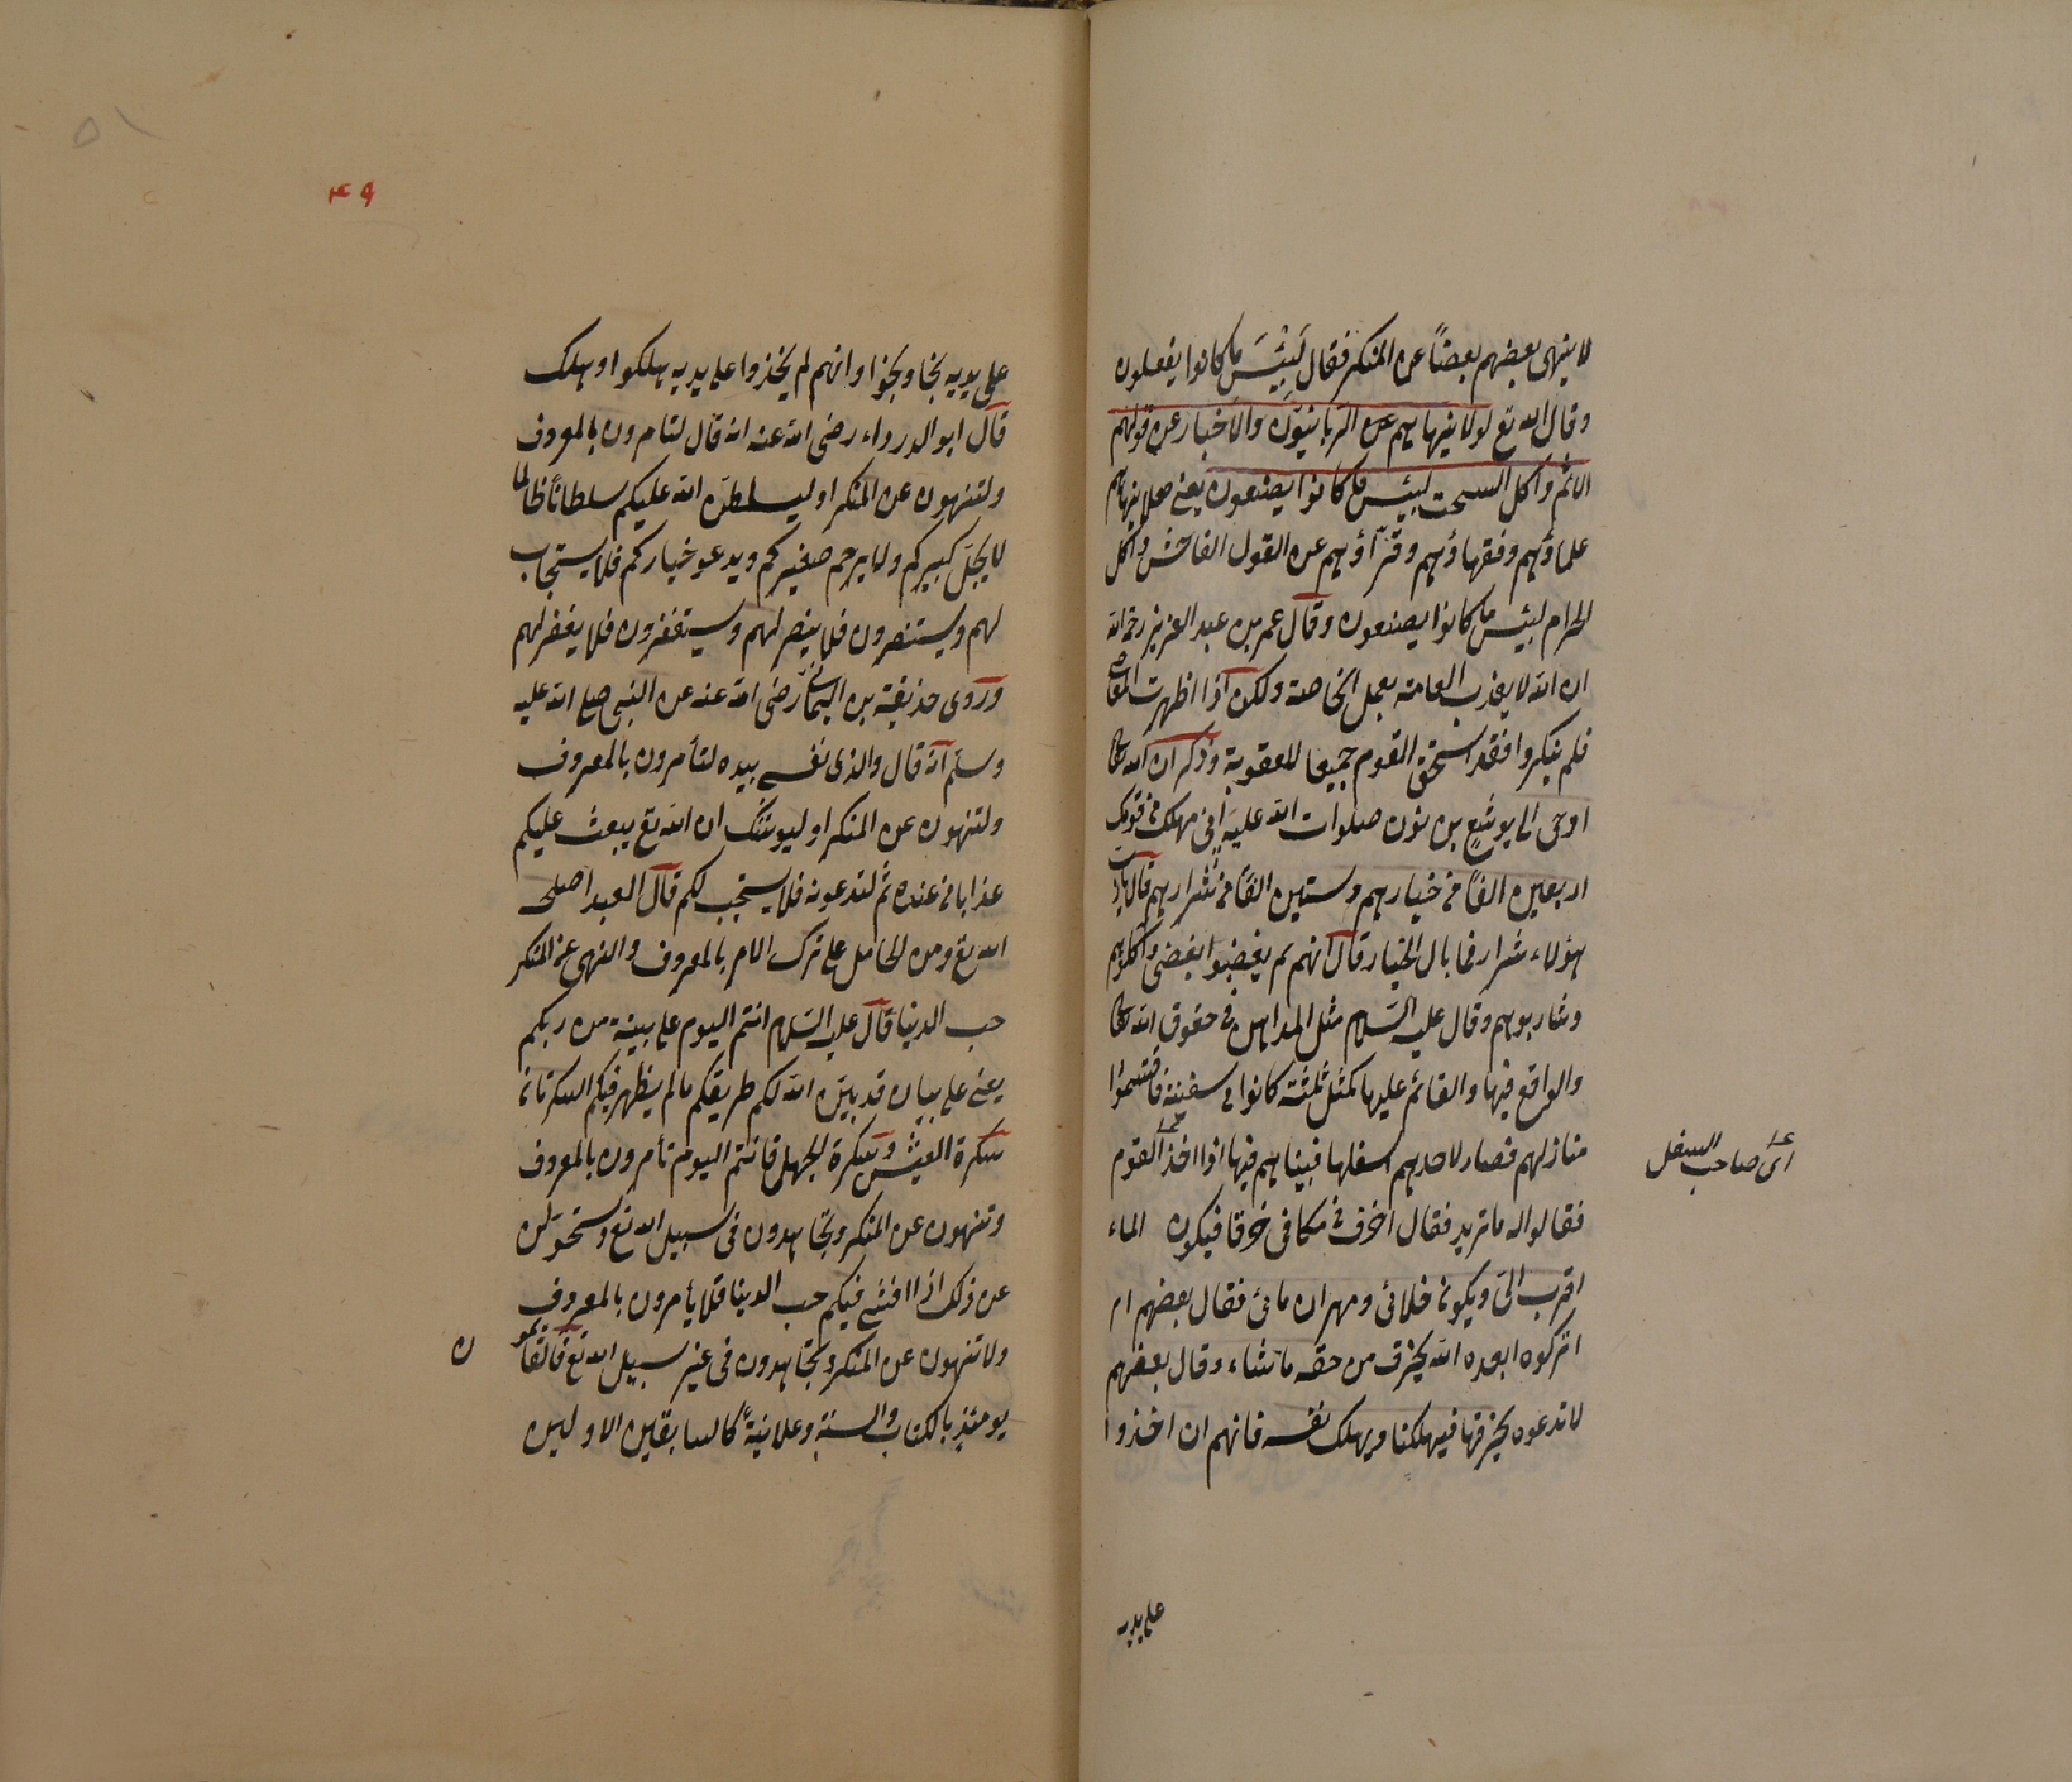 لا ينهى بعضهم بعضاً عن المنكر فقال لَبِئْسَ ما كانوا يفعلون
وقال الله تع لولا ينهاهم عن الربانيّون والأحبار عن قولهم
الاثم وأكل السحت لبئس ما كانوا يصنعون يعنى هلا ينهاهم
علماؤهم وفقهاؤهم وقرّاؤهم عن القول الفاحش واكل
الحرام لبئس ما كانوا يصنعون وقال عمر بن عبد العزيز رحمه الله
ان الله لا يعذب العامة بعمل الخاصة ولكن اذا اظهرت المعاصى
فلم ينكروا فقد استحق القوم جميعا للعقوبة وذكر ان الله تعالى
اوحى الى يوشع بن نون صلوات الله عليه انى مهلك من قومك
اربعين الفًا من خيارهم وستين الفًا من شرارهم قال يا رب
هؤلاء شرار فما بال الخيار قال انهم لم يغضبوا بغضبى واكلوهم
وشاربوهم وقال عليه السّلام مثل المداهن فى حقوق الله تعالى
والواقع فيها والقائم عليها كمثل ثلثة كانوا فى سفينة فاقتسموا
منازلهم فصار لاحدهم اسفلها فبينا هم فيها اذا اخذ القوم
اى صاحب السفل
فقالوا له ما تريد فقال اخرق فى مكانى خرقا فيكون الماء
اقرب الىّ ويكون خلائى ومهران مائى فقال بعضهم ام
اتركوه ابعده الله يخرق من حقه ما شاء وقال بعضهم
لا تدعوه يخرقها فيهلكنا ويهلك نفسه فانهم ان اخذوا
على يديه
٤٩
٥١
على يديه نجا ونجوا وانهم لم يخذوا على يديه هلكوا وهلك
قال ابو الدرداء رضى الله عنه انه قال لتامرون بالمعروف
ولتنهون عن المنكر او ليسلطن الله عليكم سلطانًا ظالما
لا يجلّ كبيركم ولا يرحم صغيركم ويدعو خياركم فلا يستجاب
لهم ويستنصرون فلا ينصر لهم ويستغفرون فلا يغفر لهم
وروى حذيفة بن اليمان رضى الله عنه عن النبى صلى الله عليه
وسلم انه قال والذى نفسى بيده لتأمرون بالمعروف
ولتنهون عن المنكر او ليوشك ان الله تع يبعث عليكم
عذابا من عنده ثم لتدعونه فلا يستجب لكم قال العبد اصلحه
الله تع ومن الحامل على ترك الامر بالمعروف والنهى عن المنكر
حب الدنيا قال عليه السّلام انتم اليوم على بينة من ربكم
يعنى على بيان قد بيّن الله لكم طريقكم ما لم يظهر فيكم السكرتان
سكرة العيش وسكرة الجهل فانتم اليوم تأمرون بالمعروف
وتنهون عن المنكر وتجاهدون فى سبيل الله تع وستحولن
عن ذلك اذا افشى فيكم حب الدنيا فلا يأمرون بالمعروف
ولا تنهون عن المنكر وتجاهدون فى غير سبيل الله تع فالقائمو
ن
يومئذٍ بالكتاب والسنة وعلانيةً كالسابقين الاولين